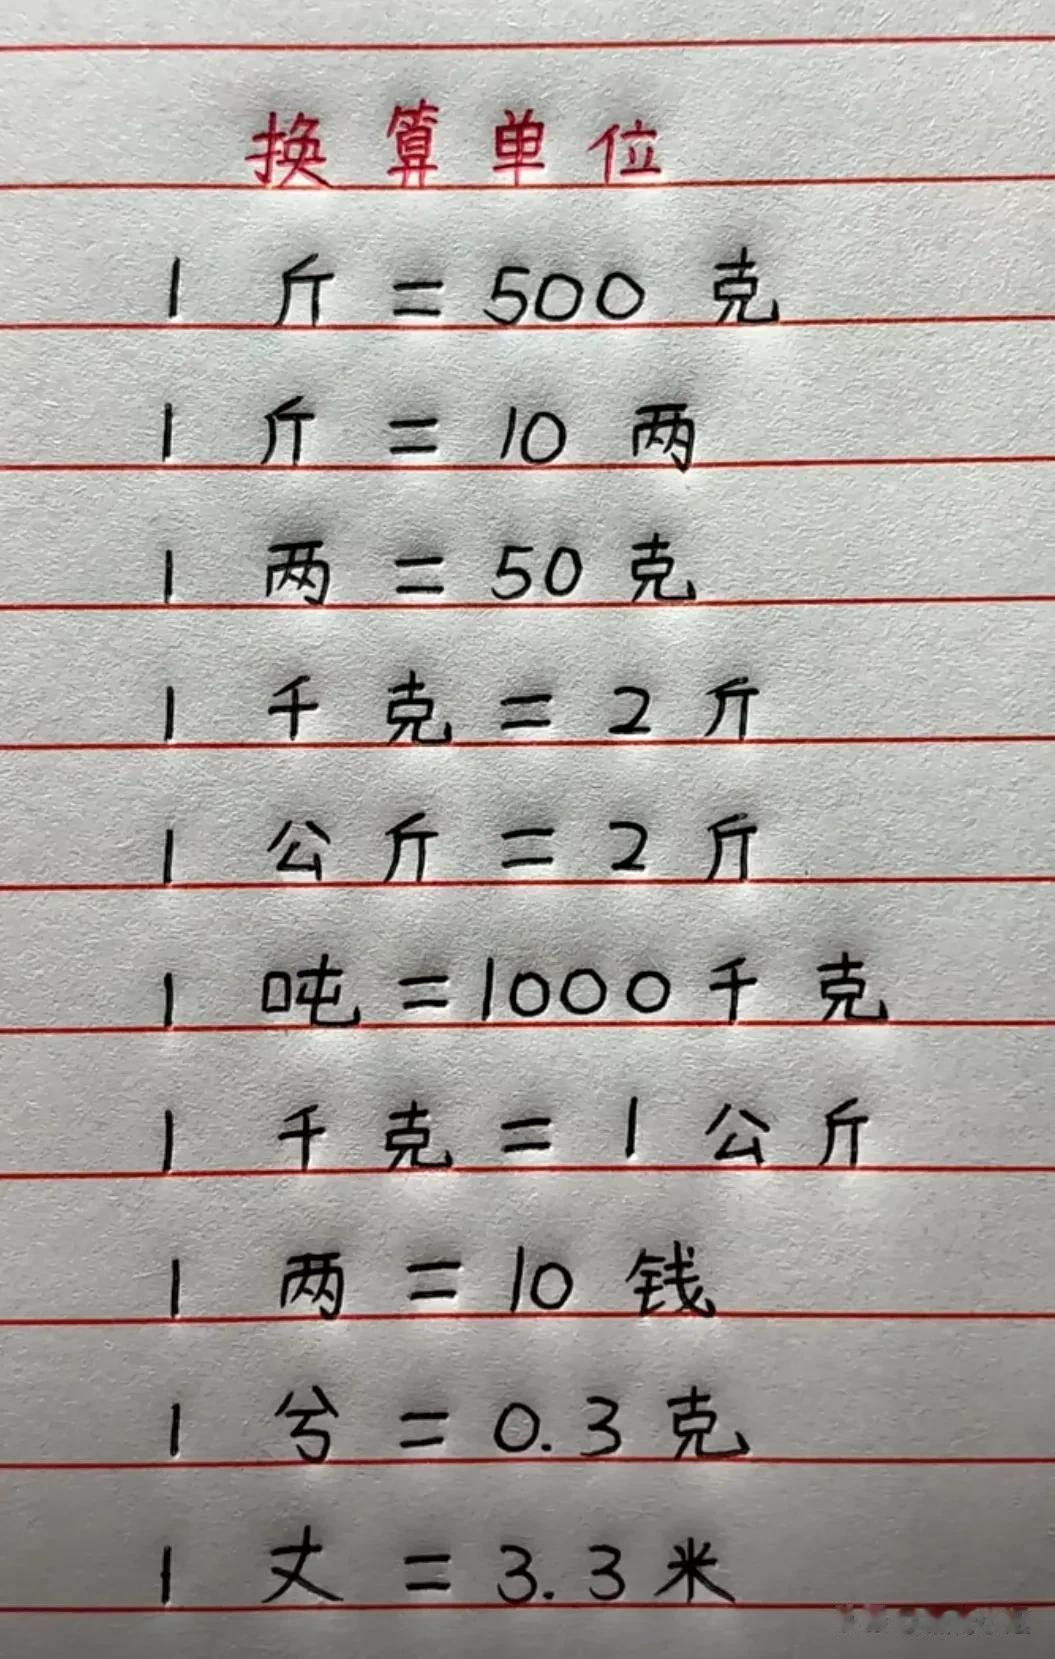 换算单位
1 斤 = 500 克
1 斤 = 10 两
1 两 = 50 克
1 千克 = 2 斤
1 公斤 = 2 斤
1 吨 = 1000 千克
1 千克 = 1 公斤
1 两 = 10 钱
1 兮 = 0.3 克
1 丈 = 3.3 米